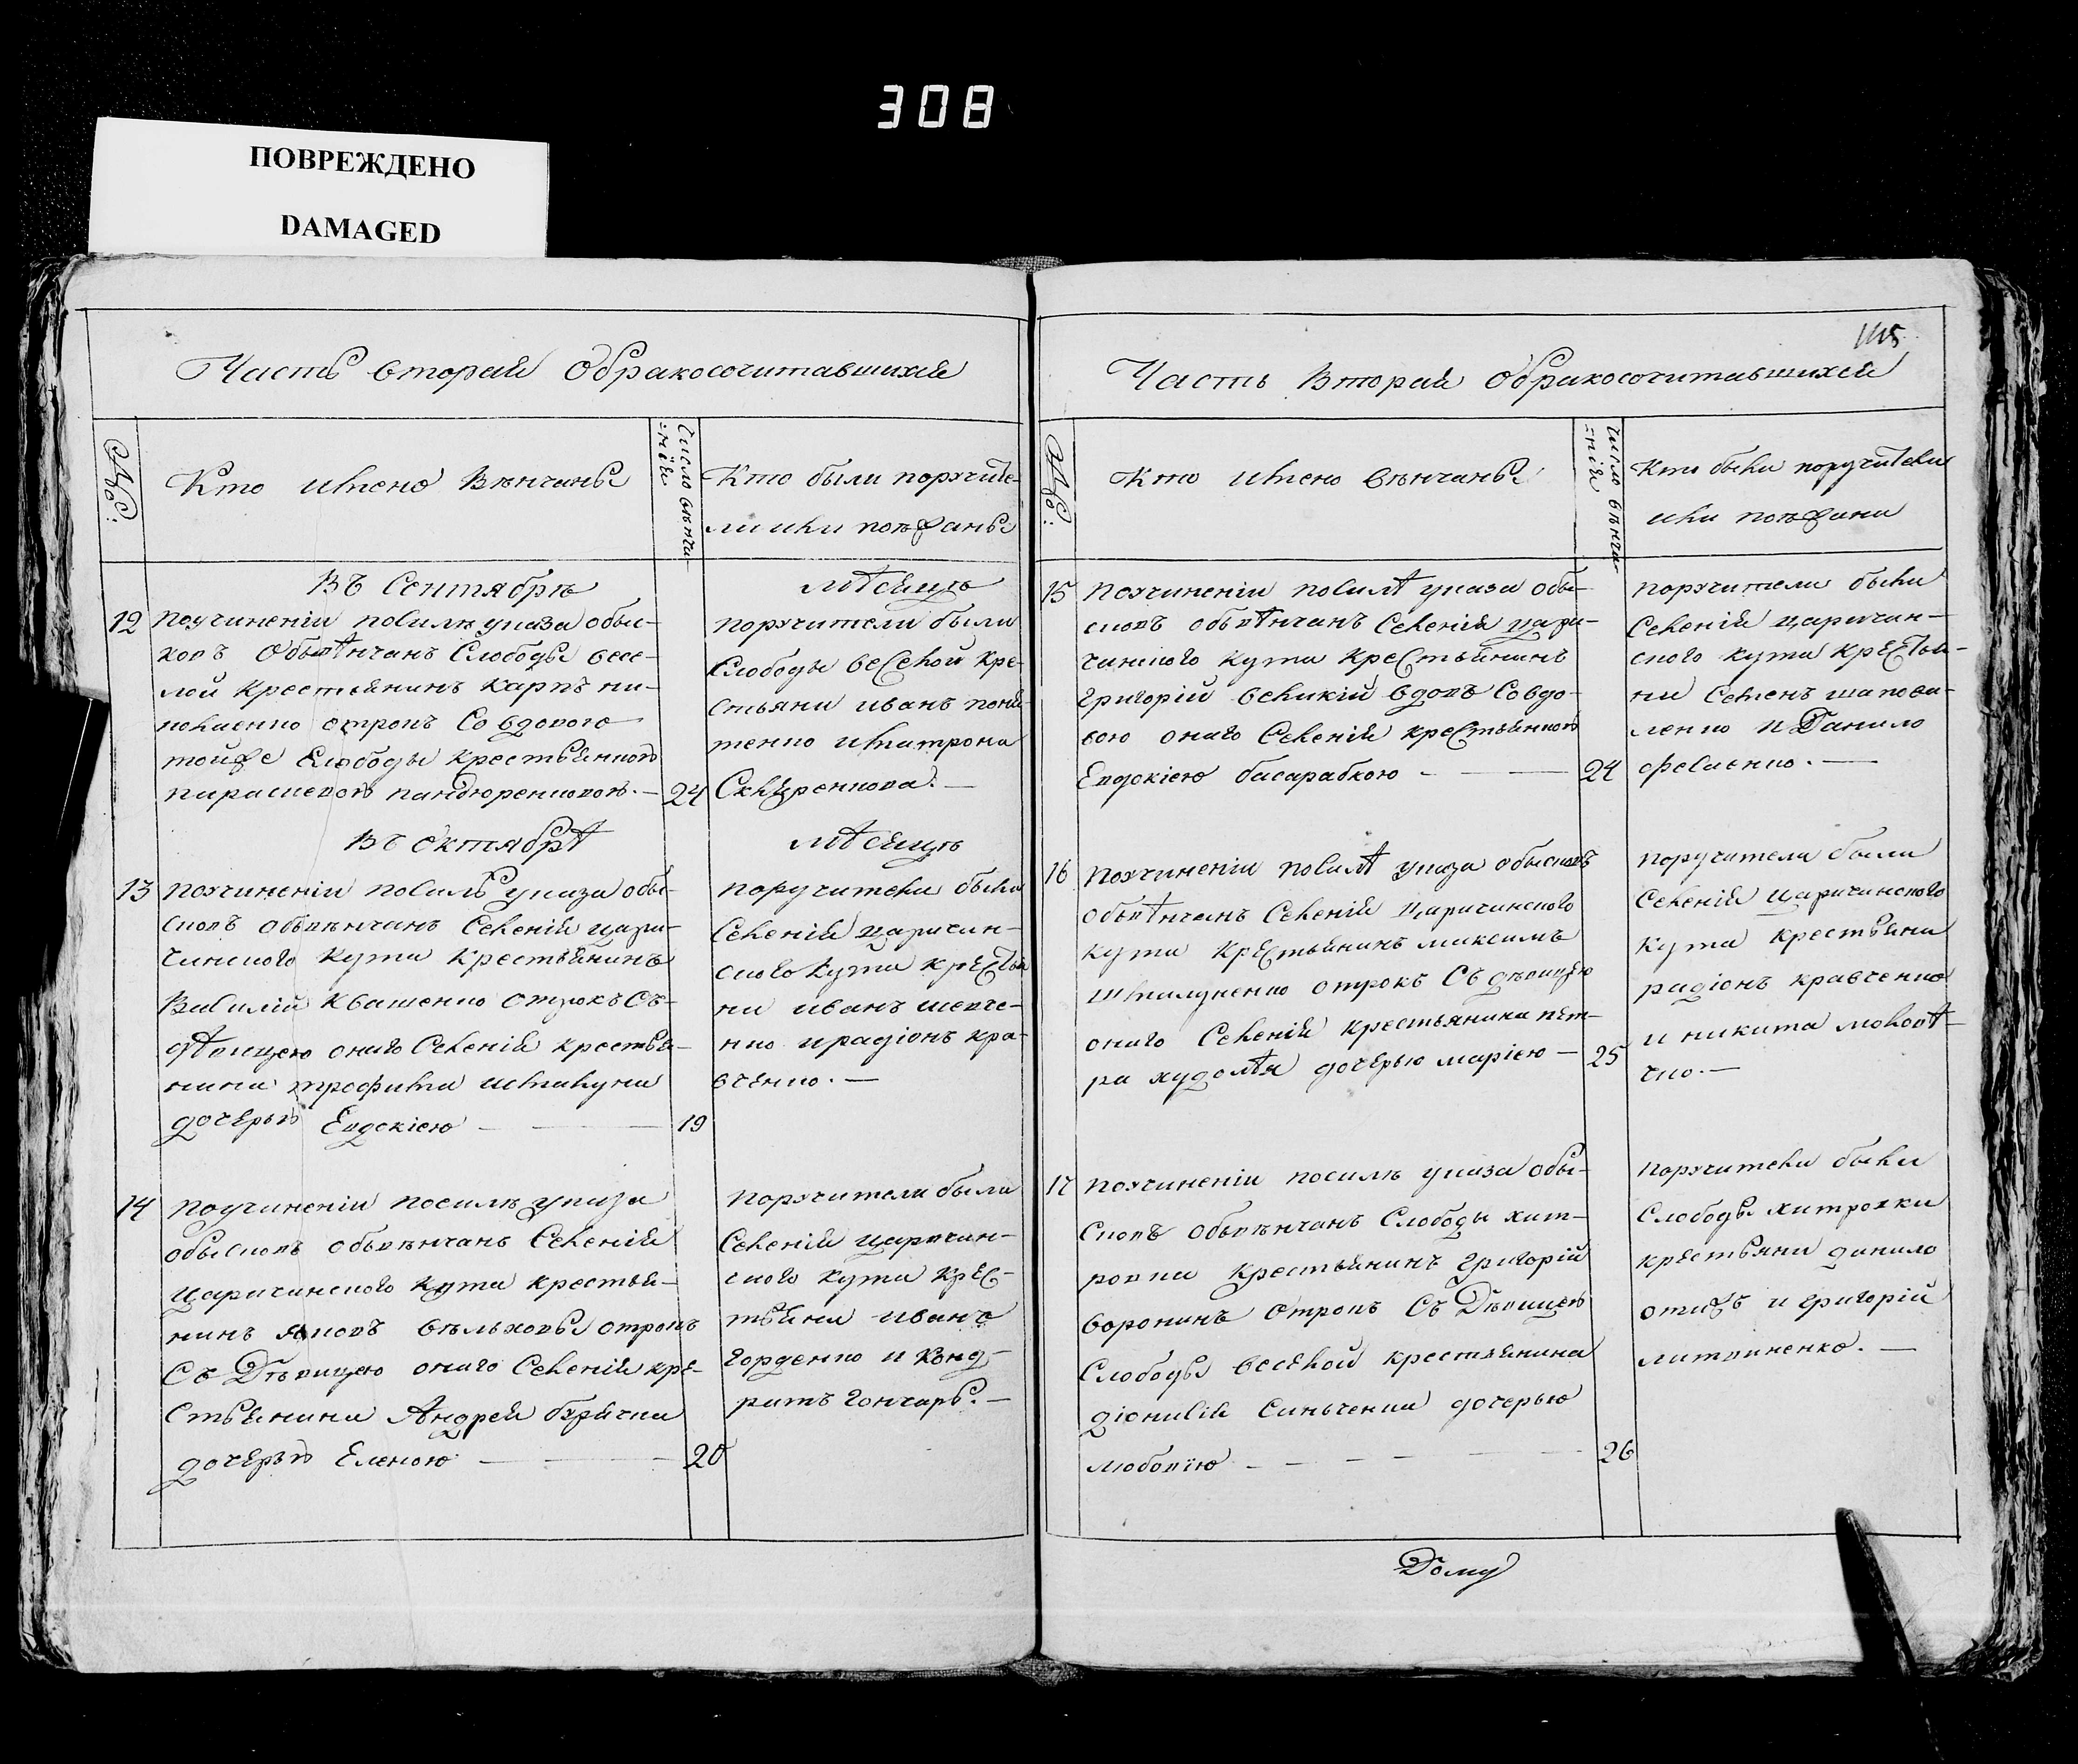 308
ПОВРЕЖДЕНО
DAMAGED
Часть вторая обракосочитавшихся
№:
Кто имено Венчаны
Число венча-
=нїя
Кто были поручите-
ли или поѣзжаны
Въ Сентябрѣ
мѣсяцѣ
12
поучиненіи посилѣ указа обыс-
ковъ Обвѣнчанъ Слободы весе-
лой крестьянинъ карпъ ни-
отрокъ Со вдовою
тойже Слободы крестьянкою
параскевою пандюренковою. —
24
поручители были
Слободы веселой кре-
стьяни иванъ поня-
тенко иматрона
Въ октябрѣ
мѣсяцѣ
13
поучиненіи посилѣ указа обы-
сковъ обвѣнчанъ Селенія цари-
чинского кута крестьянинъ
Василій квашенко отрокъ Съ-
дѣвицею онаго Селенія крестья-
нина трофима
дочерью Евдокіею —
19
поручители были
Селенія царичин-
ского кута крестья
ни иванъ шевче-
нко ирадіонъ кра-
вченко. —
14
поучиненіи посилѣ указа
обысковъ обвѣнчанъ Селенія
царичинского кута крестья-
нинъ яковъ отрокъ
Съ Дѣвицею онаго Селенія кре-
стьянина Андрея
дочерью Еленою —
20
поручители были
Селенія царичин-
ского кута крес-
тьяни иванъ
горденко и конд-
ратъ гончаръ. —
115
Часть вторая обракосочитавшихся
№:
Кто имено венчаны
Число венча-
=нїя
Кто были поручители
или поѣзжани
15
поучиненіи посилѣ указа обы-
сковъ обвѣнчанъ Селенія цари-
чинского кута крестьянинъ
григорій великій вдовъ Совдо-
вою онаго Селенія крестьянкою
Евдокіею басарабкою —
24
поручители были
Селенія царичин-
ского кута крестья-
ни Семенъ шапова-
ленко и Данило
фесenко. —
16
поучиненіи посилѣ указа обысковъ
обвѣнчанъ Селенія Царичинского
кута крестьянинъ максимъ
отрокъ Съ дѣвицею
онаго Селенія крестьянина пет-
ра худолѣя дочерью маріею —
25
поручители были
Селенія царичинского
кута крестьяни
радіонъ кравченко
и никита
17
поучиненіи посилѣ указа обы-
сковъ обвѣнчанъ Слободы хит-
ровки крестьянинъ григорій
воронинъ отрокъ Съ Дѣвицею
Слободы веселой крестьянина
діонисія Синьченка дочерью
любовїю — — — —
26
поручители были
Слободы хитровки
крестьяни данило
и григорій
литвиненко. —
Дому